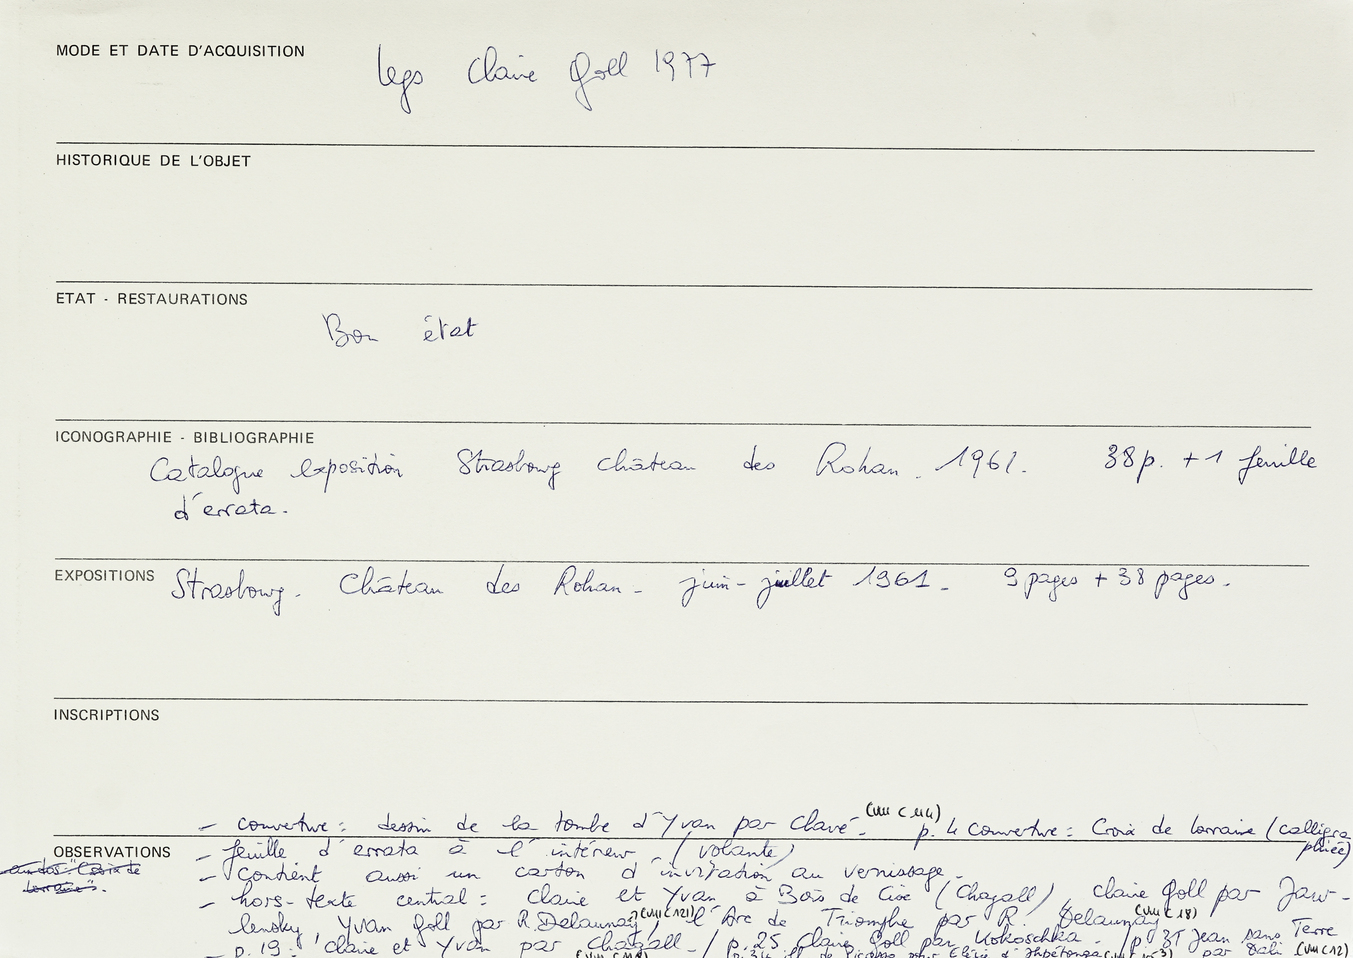 MODE ET DATE D'ACQUISITION legs Claire Goll 1977
HISTORIQUE DE L'OBJET
ETAT - RESTAURATIONS
Bon état
ICONOGRAPHIE - BIBLIOGRAPHIE
Catalogue exposition Strasbourg château des Rohan. 1961. 38p. + 1 feuille
d'errata.
EXPOSITIONS Strasbourg. Château des Rohan - juin - juillet 1961 - 9 pages + 38 pages.
INSCRIPTIONS
- couverture : dessin de la tombe d'Yvan par Clavé. p. 4 couverture : Croix de Lorraine (calligra
phiée)
OBSERVATIONS - feuille d'errata à l'intérieur - (volante)
- Contient aussi un carton d'invitation au vernissage -
- hors-texte central : Claire et Yvan à Bois de Cise (Chagall), Claire Goll par Jaw-
lensky, Yvan Goll par R. Delaunay, l'Arc de Triomphe par R. Delaunay
- p. 19 : Claire et Yvan par Chagall - / p. 25 Claire Goll par Kokoschka - / p. 31 Jean sans Terre
par Dali